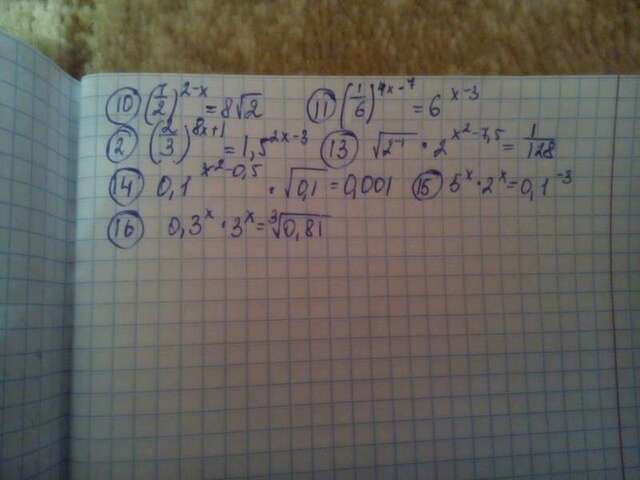 10) (1/2)^{2-x} = 8√2 11) (1/6)^{4x-7} = 6^{x-3}
2) (2/3)^{8x+1} = 1,5^{2x-3} 13) √2^{-1} · 2^{x^2-7,5} = 1/128
14) 0,1^{x^2-0,5} · √0,1 = 0,001 15) 5^x · 2^x = 0,1^{-3}
16) 0,3^x · 3^x = ∛0,81